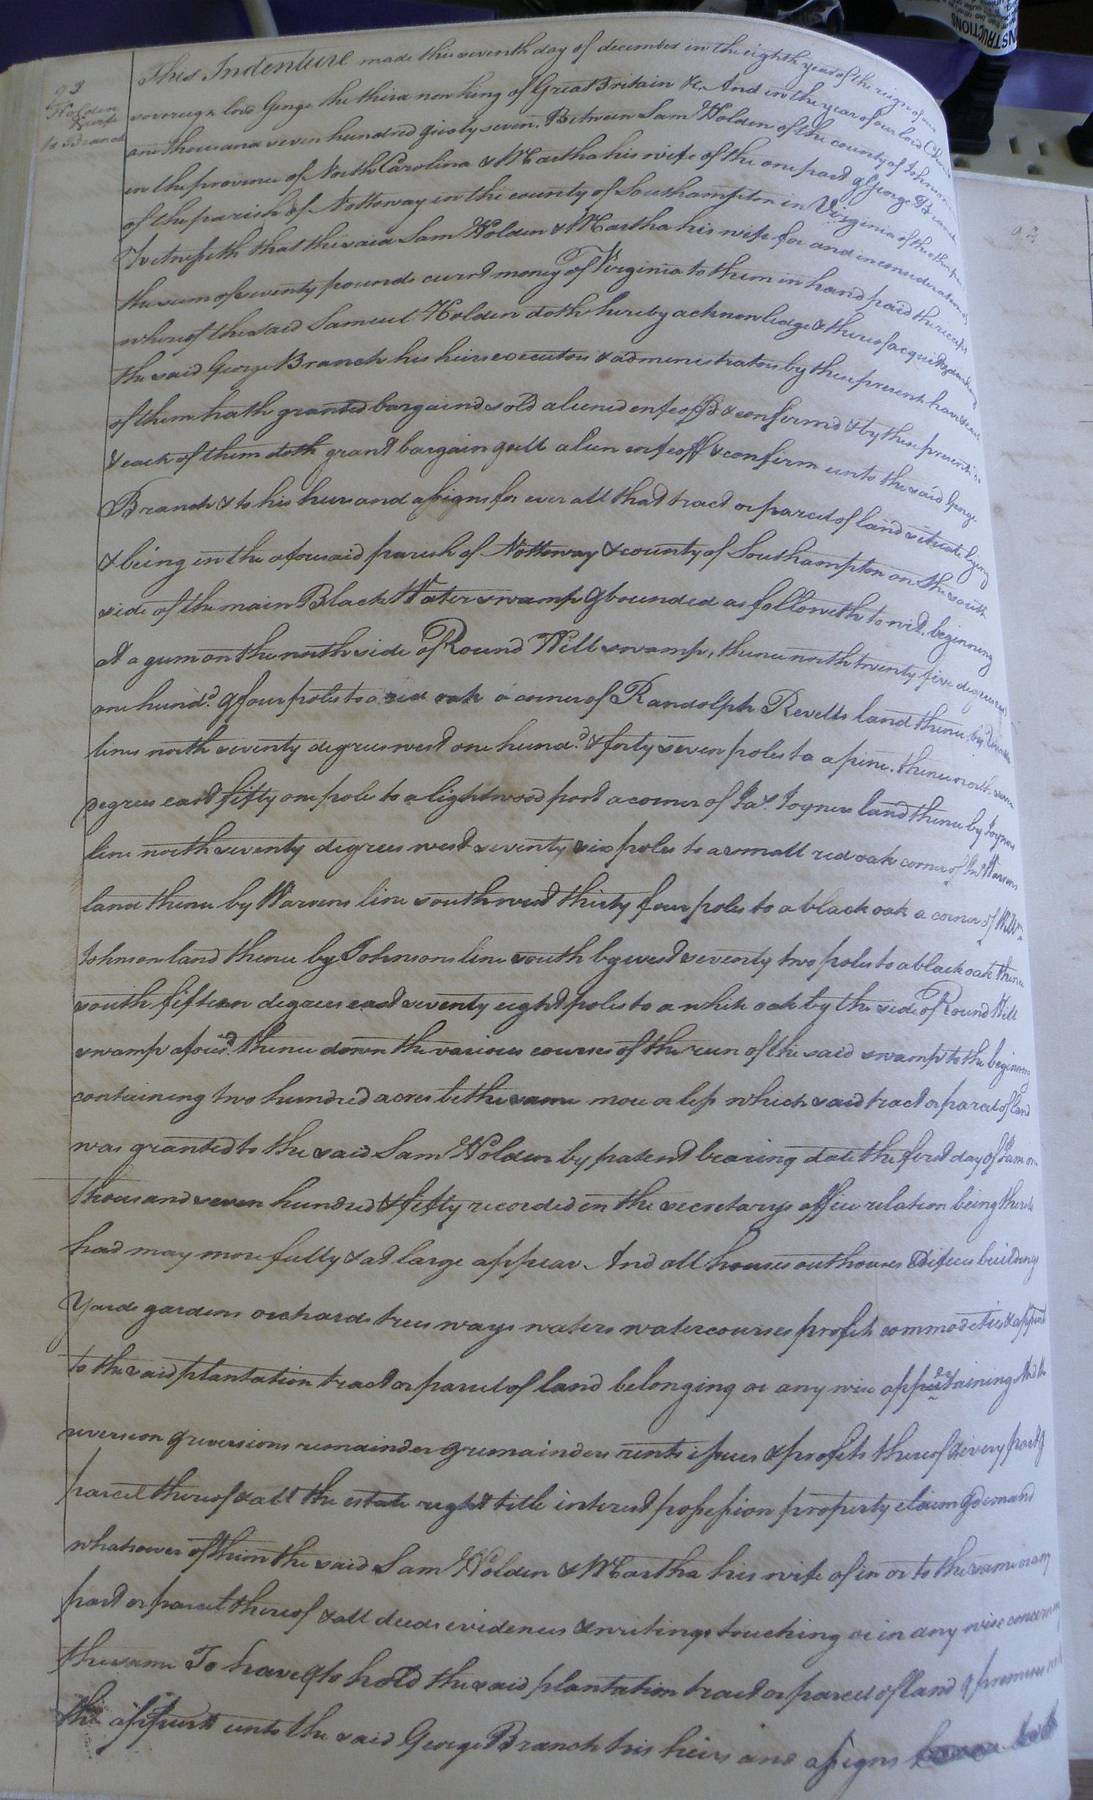 93
Holden
to Branch
This Indenture made this seventh day of december in the eighth year of the reign of our
sovereign lord George the third now king of Great Britain &c. And in the year of our lord Christ
one thousand seven hundred sixty seven. Between Sam Holden of the county of Johnson
in the province of North Carolina & Martha his wife of the one part & George Branch
of the parish of Nottoway in the county of Southampton in Virginia of the other part
Witnesseth that the said Sam Holden & Martha his wife for and in consideration of
the sum of seventy pounds current money of Virginia to them in hand paid the receipt
whereof the said Samuel Holden doth hereby acknowledge & thereof acquit
the said George Branch his heirs executors & administrators by these presents have & each
of them hath granted bargaind sold aliened enfeoffd & confirmd & by these presents
& each of them doth grant bargain sell alien enfeoff & confirm unto the said George
Branch & to his heirs and assigns for ever all that tract or parcel of land situate lying
& being in the aforesaid parish of Nottoway & county of Southampton on the south
side of the main Black Water swamp & bounded as followeth to wit, beginning
at a gum on the north side of Round Hill swamp, thence north twenty five degrees
one hund.d & four poles to a red oak a corner of Randolph Revells land thence by
lines north seventy degrees west one hund.d & forty seven poles to a pine, thence north
degrees east fifty one poles to a lightwood post a corner of Ja.s Joyners land thence by Joyners
line north seventy degrees west seventy six poles to a small red oak corner of Warrens
land thence by Warrens line southwest thirty four poles to a black oak a corner of Willm
Johnson land thence by Johnsons line south by west seventy two poles to a black oak thence
south fifteen degrees east seventy eight poles to a white oak by the side of Round Hill
swamp aforesd. thence down the various courses of the run of the said swamp to the beginning
containing two hundred acres be the same more or less which said tract or parcel of land
was granted to the said Sam Holden by patent bearing date the first day of
thousand seven hundred & fifty recorded in the secretarys office relation being thereto
had may more fully & at large appear. And all houses outhouses edifices buildings
Yards gardens orchards trees ways waters watercourses profits commodities & appurt
to the said plantation tract or parcel of land belonging or any wise appertaining And the
reversion & reversions remainder & remainders rents issues & profits thereof & every part &
parcel thereof & all the estate right title interest possession property claim & demand
whatsoever of them the said Sam Holden & Martha his wife of in or to the same or any
part or parcel thereof & all deeds evidences & writings touching or in any wise concerning
the same To have & to hold the said plantation tract or parcel of land & premises
the appurts unto the said George Branch his heirs and assigns